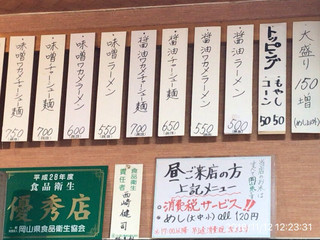 大盛り 150増
トッピング・もやし 50
・コーン 50
醤油ラーメン 500
醤油ワカメラーメン 550
醤油チャーシュー麺 650
醤油ワカメチャーシュー麺 700
味噌ラーメン 550
味噌ワカメラーメン 600
味噌チャーシュー麺 700
味噌ワカメチャーシュー麺 750
平成28年度
食品衛生
優秀店
岡山県食品衛生協会
食品衛生
責任者 西崎健司
昼ご来店の方
上記メニュー
消費税サービス!!
めし(大中小)
120円
12:23:31